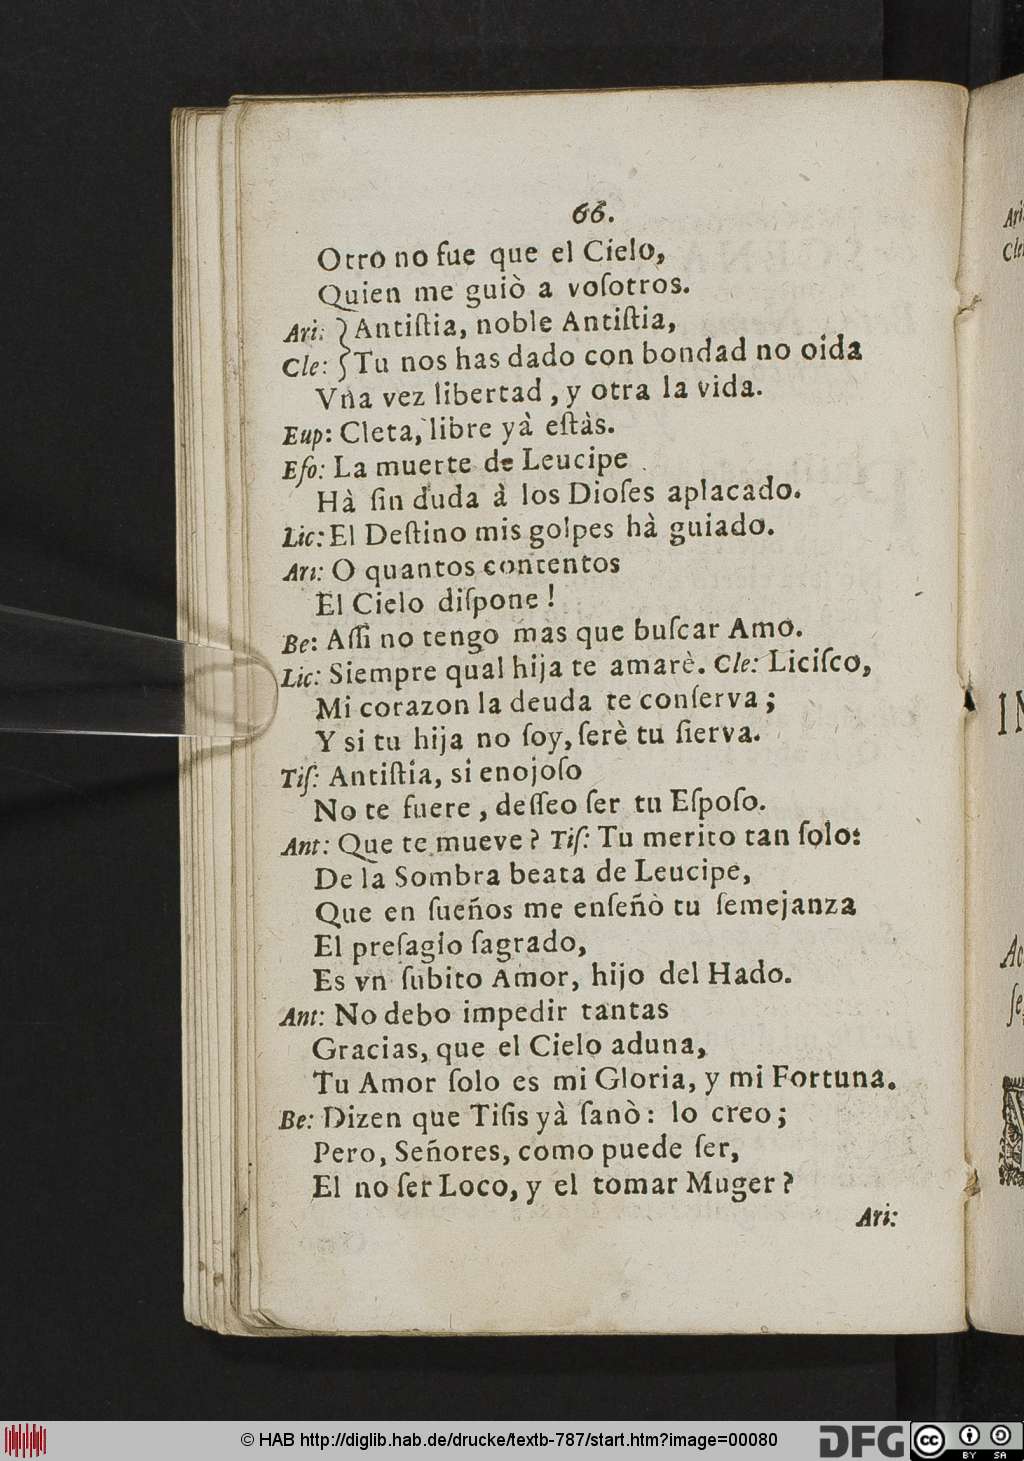 66.
Otro no fue que el Cielo,
Quien me guiò a voſotros.
Ari: } Antiſtia, noble Antiſtia,
Cle: } Tu nos has dado con bondad no oida
Vna vez libertad, y otra la vida.
Eup: Cleta, libre yà eſtàs.
Eſo: La muerte de Leucipe
Hà ſin duda à los Dioſes aplacado.
Lic: El Deſtino mis golpes hà guiado.
Ari: O quantos contentos
El Cielo diſpone!
Be: Aſſi no tengo mas que buſcar Amo.
Lic: Siempre qual hija te amarè. Cle: Liciſco,
Mi corazon la deuda te conſerva;
Y si tu hija no ſoy, ſerè tu ſierva.
Tiſ: Antiſtia, si enojoſo
No te fuere, deſſeo ſer tu Eſpoſo.
Ant: Que te mueve? Tiſ: Tu merito tan ſolo:
De la Sombra beata de Leucipe,
Que en ſueños me enſeñò tu ſemejanza
El preſagio ſagrado,
Es vn ſubito Amor, hijo del Hado.
Ant: No debo impedir tantas
Gracias, que el Cielo aduna,
Tu Amor ſolo es mi Gloria, y mi Fortuna.
Be: Dizen que Tiſis yà ſanò: lo creo;
Pero, Señores, como puede ſer,
El no ſer Loco, y el tomar Muger?
Ari:
Ari
Cle
IN
Ac
ſe
© HAB http://diglib.hab.de/drucke/textb-787/start.htm?image=00080
DFG
cc BY SA